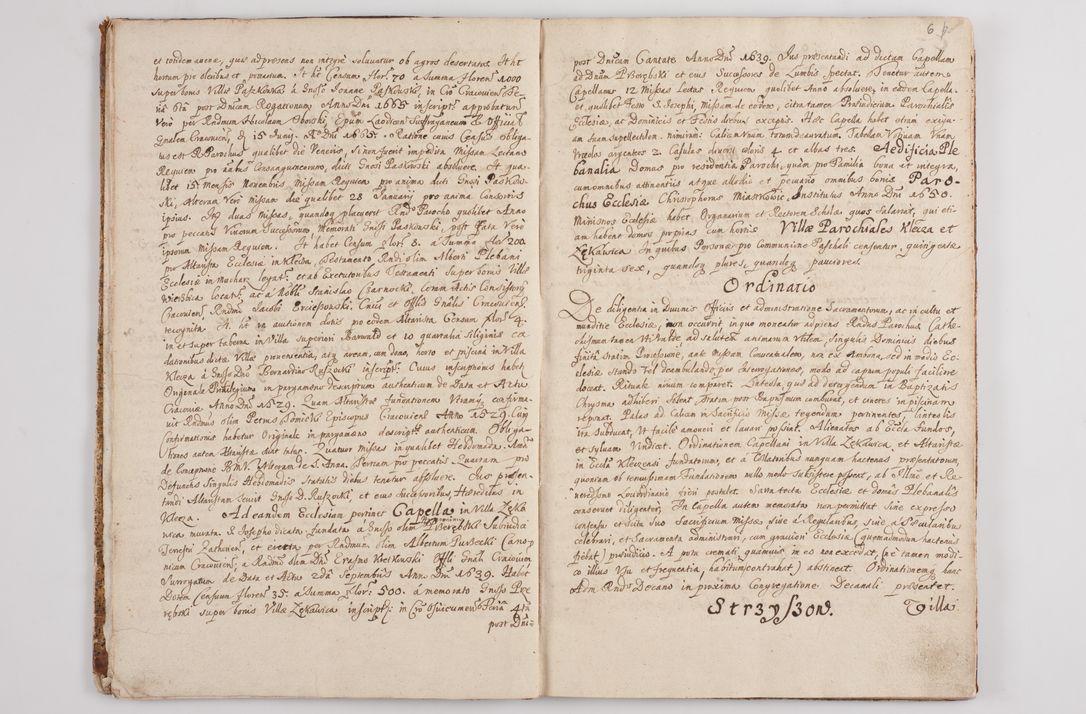 et eosdem arena, quae ad praesens non integre solvuntur ob agros desertatos. It. ht
hortum pro oleribus et prouentum. It. ht Censum Flor. 70 a Summa Florens 1000
super bonis Villae Paszkowka a Gnoso Joanne Paszkowski, in Cro Cracouiensi Fe-
ria 6ta post Dnicam Rogationum Anno Dni 1655 inscript. approbatum
Vero per Rndmum Nicolaum Oborski, Epum Laodicen. Suffraganeum et Officia.
Gnalem Cracouien. 15 Junij Ao Dni 1665. Ratione cuius Census obliga-
tus est R. Parochus qualibet die Veneris, si non fuerit impedita Missam Lectam
Requiem pro aabus Consanguineorum, dicti Gnosi Paskowski absoluere. It qua-
libet 15 Mensis Novembris Missam Requiem pro anima dicti Gnosi Paskow-
ski, Alteram Vero Missam die qualibet 28 Januarij pro anima Consortis
ipsius. Ing. duas Missas, quandoq placuerit Rndo Parocho quolibet Anno
pro peccatis Viuorum Successorum Memorati Gnosi Paskowski, post Fata Vero
ipsorum Missam Requiem. It habet Censum Flor. 8. a Summa Flor 200
pro Altarista Ecclesiae in Kleczen, Testamento Rndi olim Alberti Plebani
Ecclesiae in Muchar legat. et ab Executoribus Testamenti super bonis Villae
Wierzbica locat. ac a Nobli Stanislao Czarnocki, coram Actis Consistorij
Cracouien. Rndmi Jacobi Erciesowski, Cnici et Offlis Gnalis Cracouien.
recognita. It. ht ra auctionem dotis pro eodem Altarista Censum flor. 4.
in et super taberna in Villa superiori Barwald et 10 quartalia Siliginis ca
dationibus dicta Villae prouenientia, atq aream cum domo, horto et piscina in Villa
Klecza a Gnoso Dno Bernardino Ruszocki inscript. Cuius inscriptionis habet
Originale Priuilegium in pargameno descriptum authenticum de Data et Actu
Cracouiae Anno Dni 1529. Quam Altaristae fundationem Veram confirma-
uit Rndmus olim Petrus Tomicki Episcopus Cracouien. Anno 1529. Cui
Confirmationis habetur Originale in pargameno descript. authenticum. Obliga-
tiones autem Altaristae dicti tales. Quatuor Missas in qualibet Hebdomada. Unam
de Conceptione BMV. Alteram de S. Anna. Tertiam pro peccatis. Quartam pro
Defunctis Singulis Hebdomadis Statutis diebus tenetur absoluere. Jus praesen-
tandi Altaristam Seruit Gnoso D. Ruszocki, et eius Successoribus Haeredibus in
Klecza. Ad eandem Ecclesiam pertinet Capella in Villa Zęka
wica murata. S. Josepho dicata, fundata a Gnoso olim P Berębski Subiudice
Terestri Zathorien. et erecta per Rndmum olim Albertum Ruszecki Cano-
nicum Cracouien. a Rndmo olim Dno Erasmo Kretkowski Offli Gnali Cracouien
Surrogatum de Data et Actu 2da Septembris Anno Dni 1639. Habet
Dotem Censuum Floren 35. a Summa Flor: 500. a memorato Gnoso Be
rębski super bonis Villae Zękawica inscript. in Cro Osuiecimensi Feria 4ta
post Dni-
6
post Dnicam Cantate Anno Dni 1639. Jus praesentandi ad dictam Capellam
ad Dnum P Berębski et eius Successores de Lumbis spectat. Tenetur autem
Capellanus 12 Missas Lectas Requiem quolibet Anno absoluere, in eadem Capella.
et quolibet Festo S. Josephi, Missam de eodem, citra tamen Praeiudicium Parochialis
Eclesiae, ac Dominicis et Festis diebus exceptis. Haec Capella habet etiam exigu-
am suam supellectilem. nimirum: Calicem Unum totum deauratum. Tabellam Votiuam Unam
Urceolos argenteos 2. Casulas diuersi coloris 4 et albas tres. Aedificia Ple
banalia Domus pro residentia Parochi, quam pro Familia bona et integra,
cum omnibus attinentiis atque allodio et pecuario omnibus bonis. Paro-
chus Ecclesiae Christophorus Miastkowic, Institutus Anno Dni 1650.
Ministros Ecclesiae habet, Organarium et Rectorem Scholae quos Salariat, qui eti-
am habent domos proprias cum hortis. Villae Parochiales Klecza et
Zękawica. In quibus Personae pro Communione Paschali censentur, quingentae
triginta sex, quandoq plures, quandoq pauciores.
Ordinatio
De diligentia in Diuinis Officiis et administratione Sacramentorum, ac in cultu et
munditie Ecclesiae, non occurrit, in quo moneatur adpiens Rndus Parochus. Cathe-
chismum tamen Uti Valde ad salutem animarum Utilem, Singulis Dominicis diebus
finita statim Processione, ante Missam Conuentualem, non ex Ambona, sed in medio Ec-
clesiae stando vel deambulando, per Interrogationes, modo ad captum populi faciliore
doceat. Rituale nouum comparet. Lintea, quae ad detergendum in Baptizatis
Chrysma adhiberi solent, statim post Baptismum comburat, et cineres in piscinam
reponat. Palas ad Calicem in Sacrificio Missae tegendum pertinentes linteolis
ita subducat, Ut facile amoueri et lauari possint. Alienatos ab Eccla fundos,
et syluam Vindicet. Ordinationem Capellani in Villa Zękawica, et Altaristae
in Eccla Kleczensi fundatorum, et a Collatoribus nunquam hactenus praesentatorum,
quoniam ob tenuissimam Fundationem nullo modo subsistere possent, ab Illmo et Re-
uerendissimo Loci Ordinario fieri postulet. Sarta tecta Ecclesiae et domus Plebanalis
conseruet diligenter. In Capella autem memorata non permittat Sine expresso
consensu et scitu suo Sacrificium Missae siue a Regularibus siue a Secularibus
celebrari, et Sacramenta administrari, cum grauiori Ecclesiae (quemadmodum hactenus
fiebat) praeiudicio. A potu cremati quamuis in eo non excedat, sed tamen modi-
co illius Usu et frequentia, habitum contrahat, abstineat. Ordinationemq hanc
Adm. Rndo Decano in proxima Congregatione Decanali praesentet.
Strzyszow. Villa